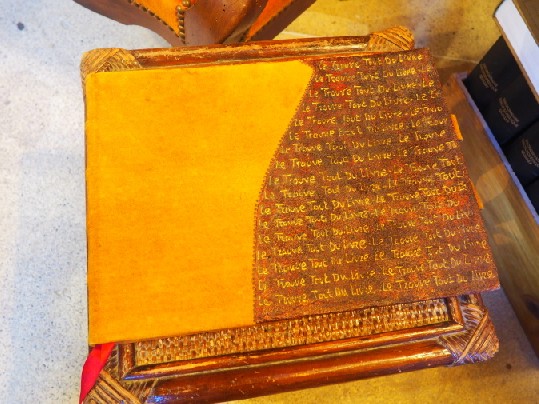 Le Trouve Tout Du Livre
Le Trouve Tout Du Livre
Le Trouve Tout Du Livre Le
Le Trouve Tout Du Livre Le
Le Trouve Tout Du Livre Le
Le Trouve Tout Du Livre Le
Le Trouve Tout Du Livre Le Trouve
Le Trouve Tout Du Livre Le
Le Trouve Tout Du Livre Le Trouve
Le Trouve Tout Du Livre Le Trouve Tout
Le Trouve Tout Du Livre Le Trouve Tout
Le Trouve Tout Du Livre Le Trouve Tout Du
Le Trouve Tout Du Livre Le Trouve
Le Trouve Tout Du Livre Le Trouve Tout Du
Le Trouve Tout Du Livre Le Trouve Tout Du Livre
Le Trouve Tout Du Livre Le Trouve Tout Du Livre
Le Trouve Tout Du Livre Le Trouve Tout Du Livre